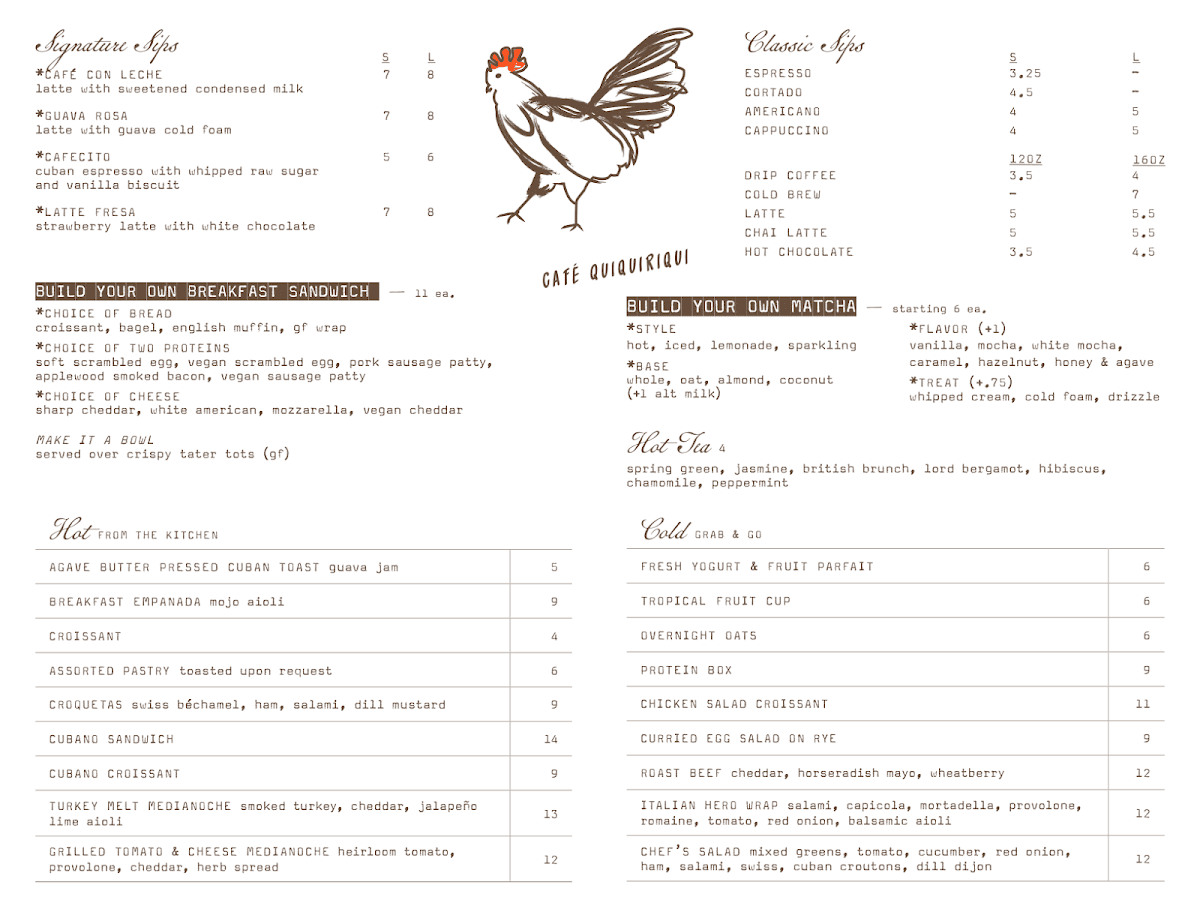 Signature Sips
S L
*CAFÉ CON LECHE 7 8
latte with sweetened condensed milk
*GUAVA ROSA 7 8
latte with guava cold foam
*CAFECITO 5 6
cuban espresso with whipped raw sugar
and vanilla biscuit
*LATTE FRESA 7 8
strawberry latte with white chocolate
CAFÉ QUIQUIRIQUI
Classic Sips
S L
ESPRESSO 3.25 –
CORTADO 4.5 –
AMERICANO 4 5
CAPPUCCINO 4 5
12OZ 16OZ
DRIP COFFEE 3.5 4
COLD BREW – 7
LATTE 5 5.5
CHAI LATTE 5 5.5
HOT CHOCOLATE 3.5 4.5
BUILD YOUR OWN BREAKFAST SANDWICH — 11 ea.
*CHOICE OF BREAD
croissant, bagel, english muffin, gf wrap
*CHOICE OF TWO PROTEINS
soft scrambled egg, vegan scrambled egg, pork sausage patty,
applewood smoked bacon, vegan sausage patty
*CHOICE OF CHEESE
sharp cheddar, white american, mozzarella, vegan cheddar
MAKE IT A BOWL
served over crispy tater tots (gf)
BUILD YOUR OWN MATCHA — starting 6 ea.
*STYLE
hot, iced, lemonade, sparkling
*BASE
whole, oat, almond, coconut
(+1 alt milk)
*FLAVOR (+1)
vanilla, mocha, white mocha,
caramel, hazelnut, honey & agave
*TREAT (+.75)
whipped cream, cold foam, drizzle
Hot Tea 4
spring green, jasmine, british brunch, lord bergamot, hibiscus,
chamomile, peppermint
Hot FROM THE KITCHEN
AGAVE BUTTER PRESSED CUBAN TOAST guava jam 5
BREAKFAST EMPANADA mojo aioli 9
CROISSANT 4
ASSORTED PASTRY toasted upon request 6
CROQUETAS swiss béchamel, ham, salami, dill mustard 9
CUBANO SANDWICH 14
CUBANO CROISSANT 9
TURKEY MELT MEDIANOCHE smoked turkey, cheddar, jalapeño
lime aioli 13
GRILLED TOMATO & CHEESE MEDIANOCHE heirloom tomato,
provolone, cheddar, herb spread 12
Cold GRAB & GO
FRESH YOGURT & FRUIT PARFAIT 6
TROPICAL FRUIT CUP 6
OVERNIGHT OATS 6
PROTEIN BOX 9
CHICKEN SALAD CROISSANT 11
CURRIED EGG SALAD ON RYE 9
ROAST BEEF cheddar, horseradish mayo, wheatberry 12
ITALIAN HERO WRAP salami, capicola, mortadella, provolone,
romaine, tomato, red onion, balsamic aioli 12
CHEF'S SALAD mixed greens, tomato, cucumber, red onion,
ham, salami, swiss, cuban croutons, dill dijon 12